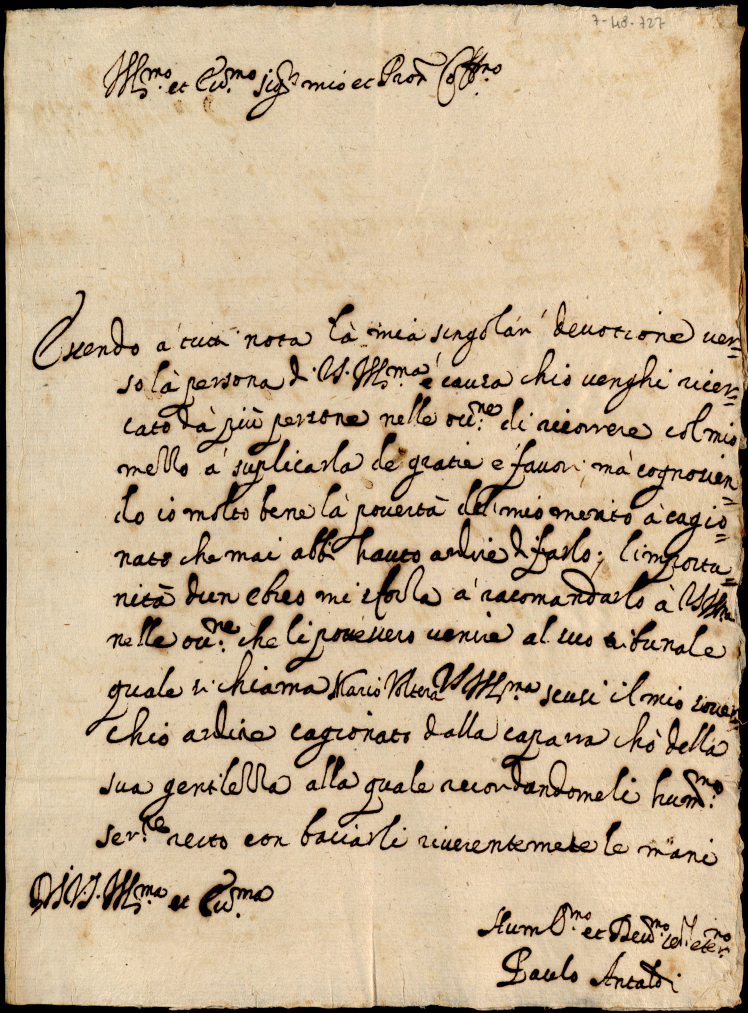 7-48-727
Ill.mo et Ecc.mo sig.r mio et Pron Coll.mo
Essendo a' tutti nota là mia singolar' devotione ver=
so là persona di V.S. Ill.ma é causa chio venghi ricer=
cato dà più persone nelle occ.ne di ricorrere col mio
mezzo a' suplicarla de gratie e favori mà cognoscen=
do io molto bene là povertà del mio merito à cagio=
nato che mai abbi hauto ardire di farlo; l'importu=
nità d'un ebreo mi sforza a' racomandarlo à VS Ill.ma
nelle occ.ne che li potessero venire al suo tribunale
quale si chiama Mario Voltera VS Ill.ma scusi il mio sover=
chio ardire cagionato dalla caparra chò della
sua gentilezza alla quale recordandomeli hum.mo
ser.re resto con baciarli riverentemete le mani
Di V.S. Ill.ma et Ecc.ma
Hum.mo et Dev.mo
Paulo Antaldi